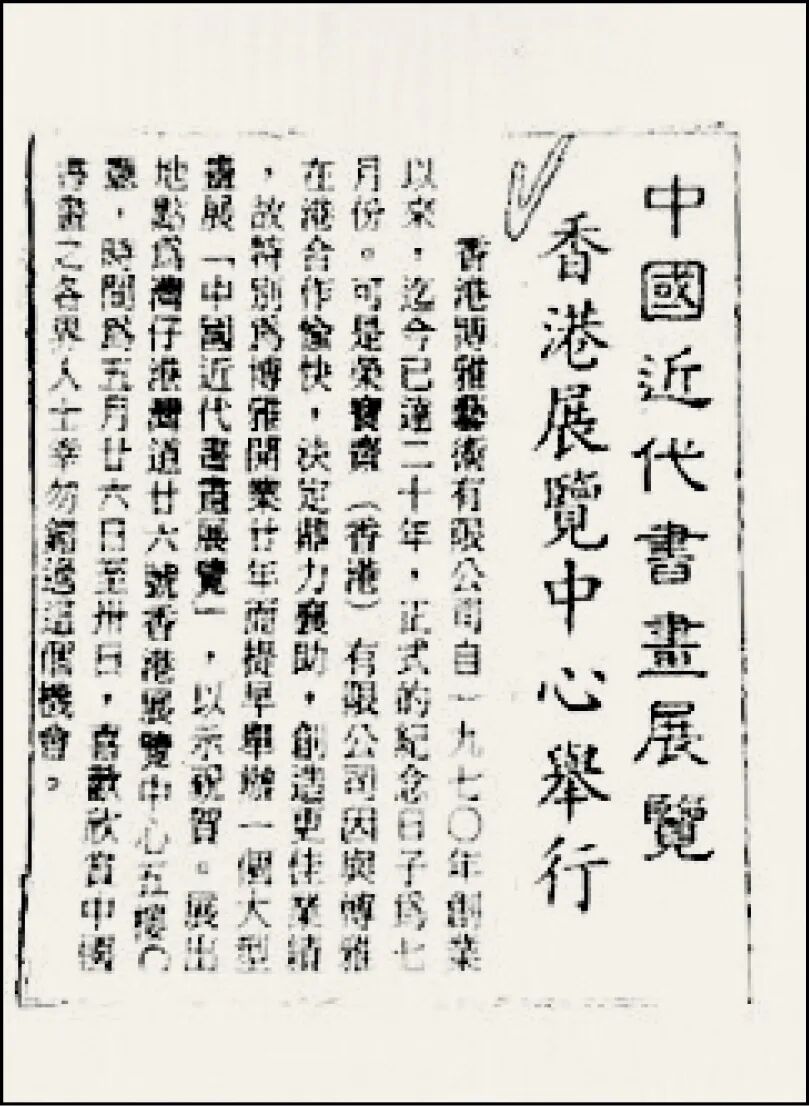 中國近代書畫展覽
香港展覽中心舉行
香港博雅藝術有限公司自一九七〇年創業
以來，迄今已達二十年，正式的紀念日子爲七
月份。可是榮寶齋（香港）有限公司因與博雅
在港合作愉快，決定鼎力襄助，創造更佳業績
，故特別爲博雅開業廿年而提早舉辦一個大型
畫展「中國近代書畫展覽」，以示祝賀。展出
地點爲灣仔港灣道廿六號香港展覽中心五樓
，時間爲五月廿六日至卅日，喜歡欣賞中國
書畫之各界人士幸勿錯過這個機會。